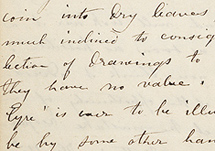 coin into dry leaves
much inclined to consig
lection of Drawings to
they have no value.
Eyre' is ever to be illu
be by some other han